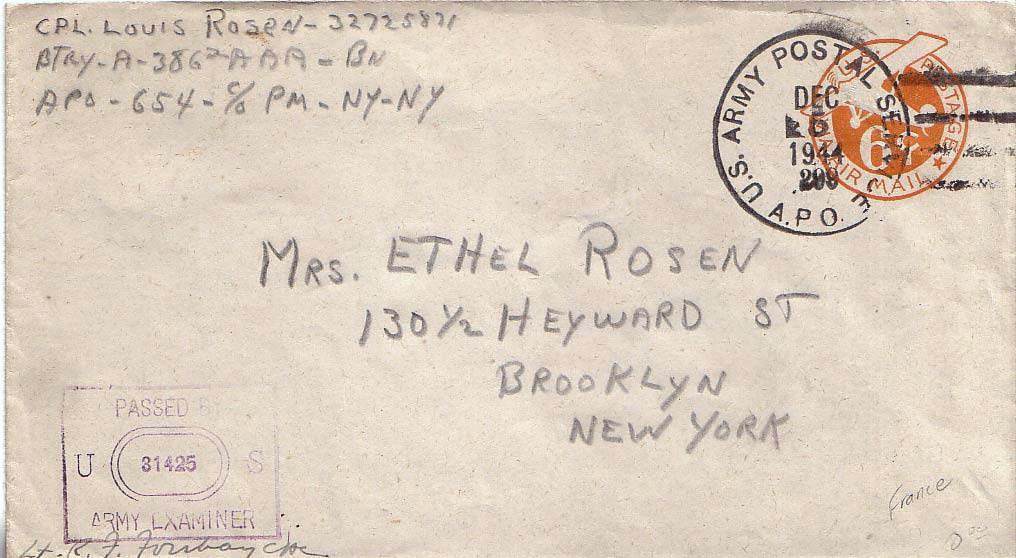 CPL. LOUIS ROSEN - 32725871
BTRY - A - 386 AAA - BN
APO - 654 - c/o PM - NY - NY
U.S. ARMY POSTAL SERVICE
DEC
8
1944
A.P.O.
POSTAGE
6¢
AIR MAIL
MRS. ETHEL ROSEN
130 1/2 HEYWARD ST
BROOKLYN
NEW YORK
PASSED BY
U 31425 S
ARMY EXAMINER
Lt. R. F.
France